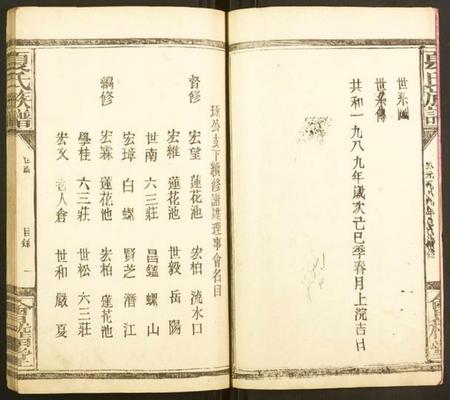 世系圖
世系傳
共和一九八九年歲次己巳季春月上浣吉日
公支下續修譜牒理事會名目
督修 宏望 蓮花池 宏柏 流水口
宏維 蓮花池 世毅 岳陽
世南 六三莊 昌鑑 螺山
宏璋 白螺 賢芝 潛江
編修 宏霖 蓮花池 宏柏 蓮花池
學桂 六三莊 世松 六三莊
宏文 老人倉 世和 嚴夏
夏氏族譜
目錄 一